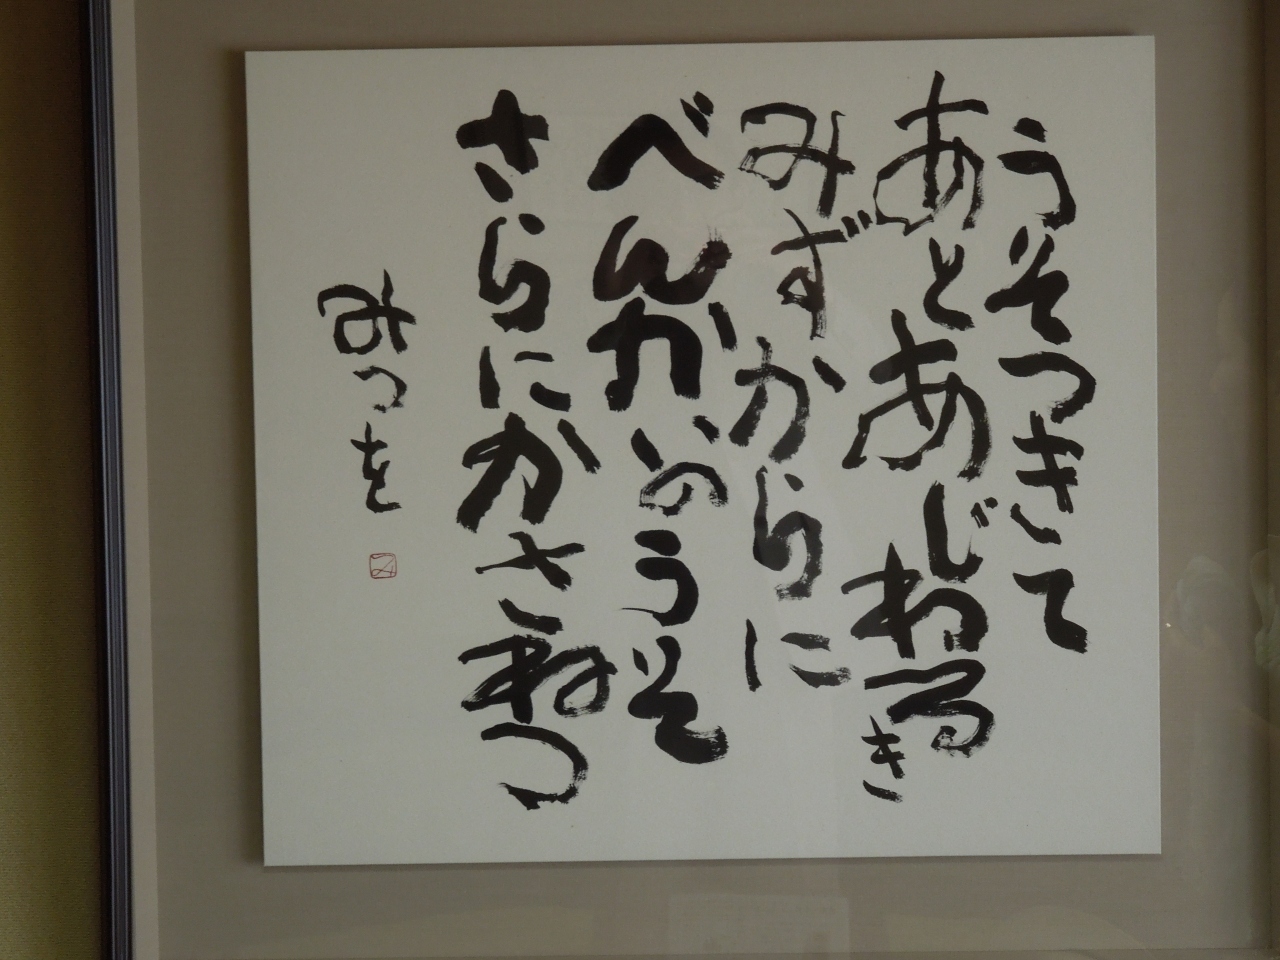 うそつきて
あとあじわるき
みずからに
べんかいのうそ
さらにかさねつ
みつを